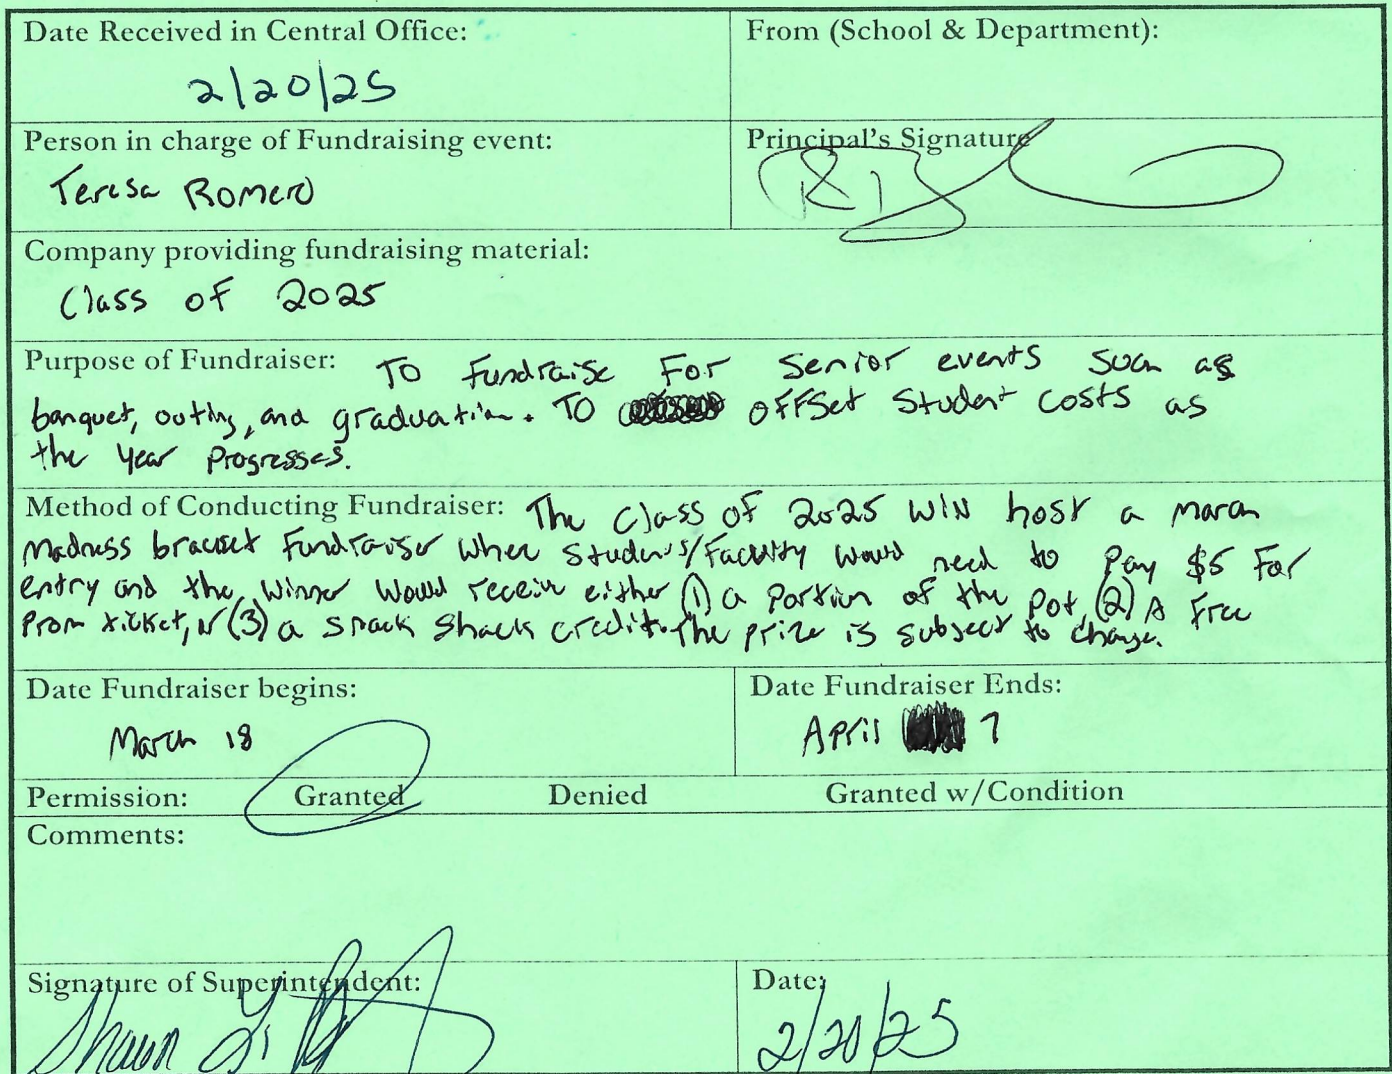 Date Received in Central Office:
2/20/25
From (School & Department):
Person in charge of Fundraising event:
Teresa Romero
Principal's Signature
Company providing fundraising material:
Class of 2025
Purpose of Fundraiser: To fundraise for senior events such as
banquet, outing, and graduation. To offset student costs as
the year progresses.
Method of Conducting Fundraiser: The Class of 2025 will host a march
madness bracket fundraiser where students/faculty would need to pay $5 for
entry and the winner would receive either (1) a portion of the pot, (2) A free
prom ticket, or (3) a snack shack credit. The prize is subject to change.
Date Fundraiser begins:
March 18
Date Fundraiser Ends:
April 7
Permission: Granted Denied Granted w/Condition
Comments:
Signature of Superintendent:
Shawn
Date:
2/20/25